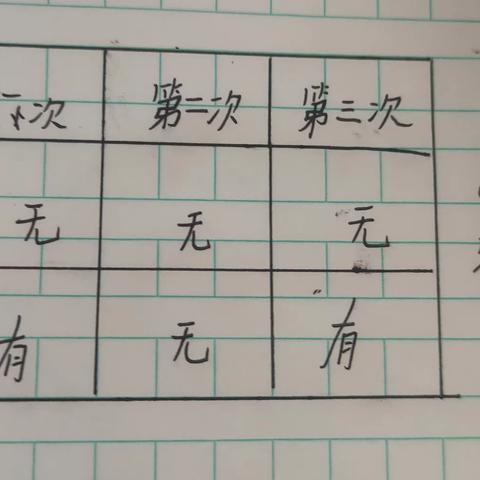 次 第二次 第三次
无 无 无
有 无 有